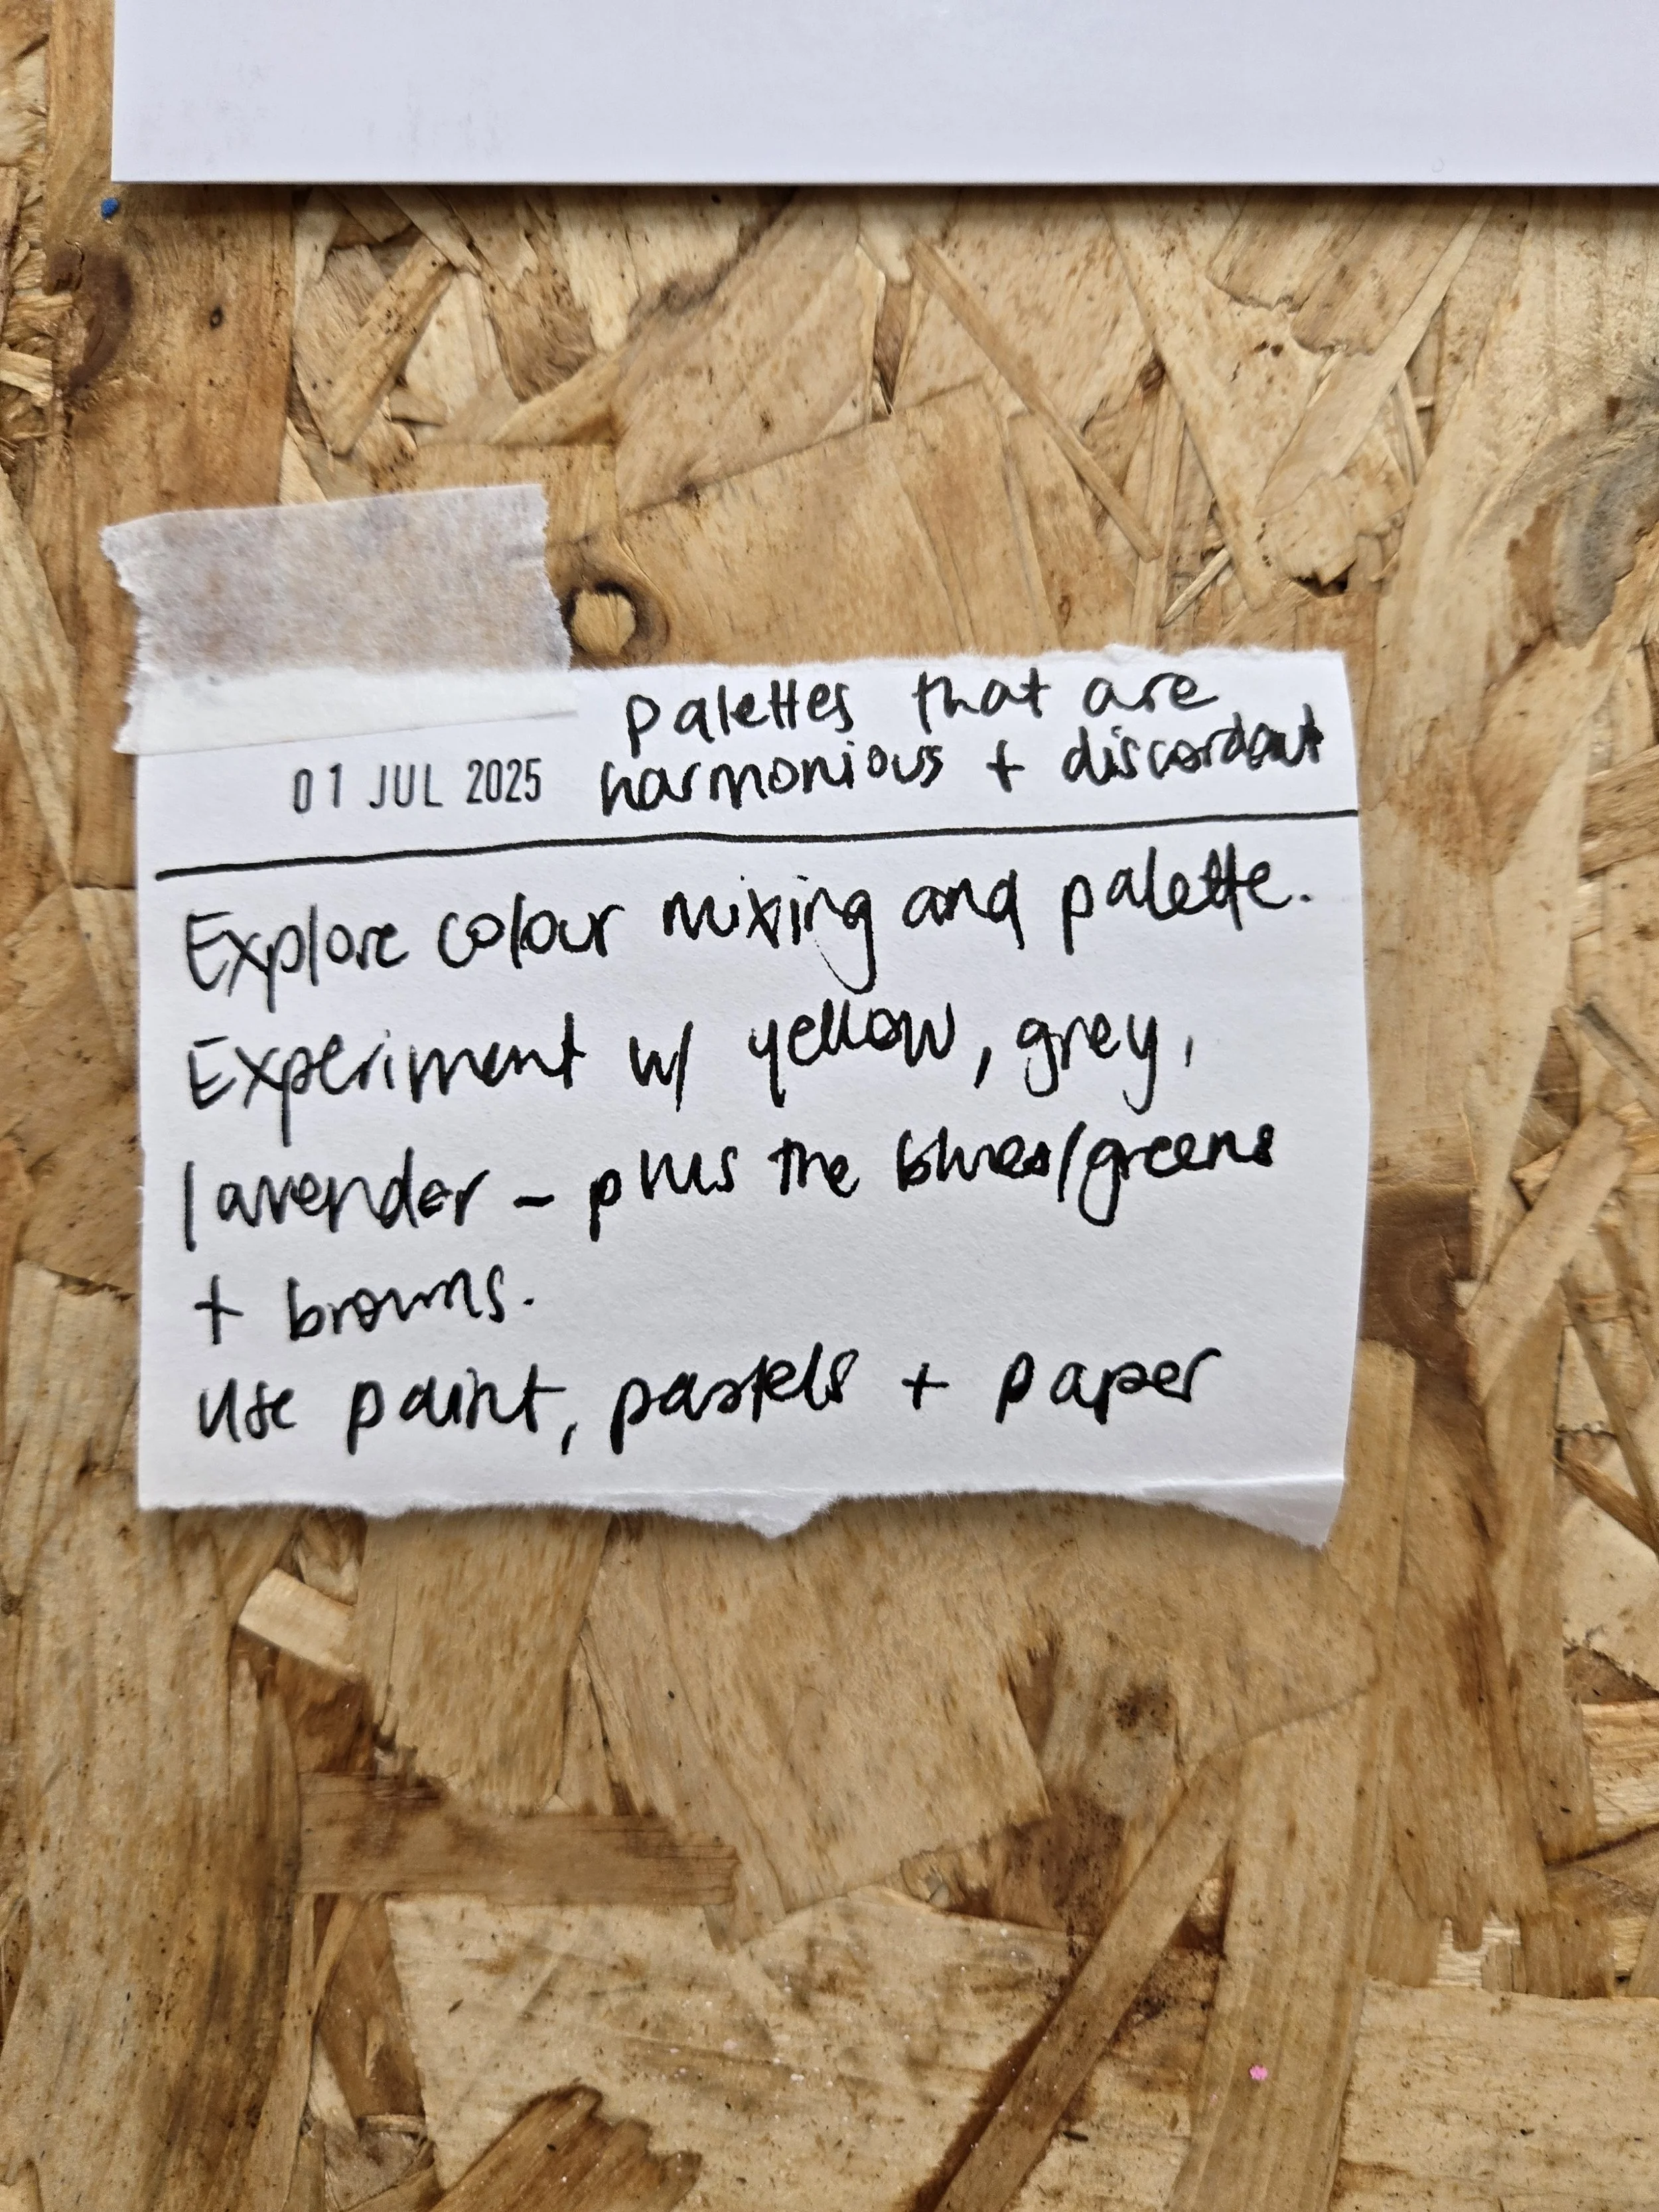 palettes that are
01 JUL 2025 harmonious + discordant
Explore colour mixing and palette.
Experiment w/ yellow, grey,
lavender - plus the blues/greens
+ browns.
use paint, pastels + paper